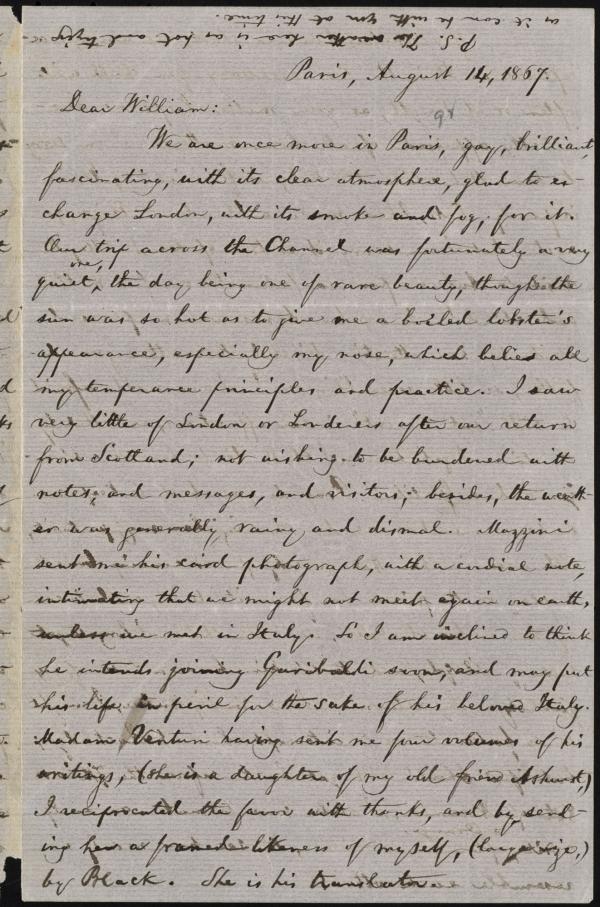 P.S. The weather here is as hot and trying
as it can be with you at this time.
Paris, August 14, 1867.
Dear William:
We are once more in Paris, gay, brilliant,
fascinating, with its clear atmosphere, glad to ex-
change London, with its smoke and fog, for it.
Our trip across the Channel was fortunately a very
quiet one, the day being one of rare beauty, though the
sun was so hot as to give me a boiled lobster's
appearance, especially my nose, which belies all
my temperance principles and practice. I saw
very little of London or Londoners after our return
from Scotland; not wishing to be burdened with
notes, and messages, and visitors; besides, the weath-
er was generally rainy and dismal. Mazzini
sent me his card photograph, with a cordial note,
intimating that we might not meet again on earth,
unless we met in Italy. So I am inclined to think
he intends joining Garibaldi soon, and may put
his life in peril for the sake of his beloved Italy.
Madam Venturi having sent me four volumes of his
writings, (she is a daughter of my old friend Ashurst,)
I reciprocated the favor with thanks, and by send-
ing her a framed likeness of myself, (large size,)
by Black. She is his translator.